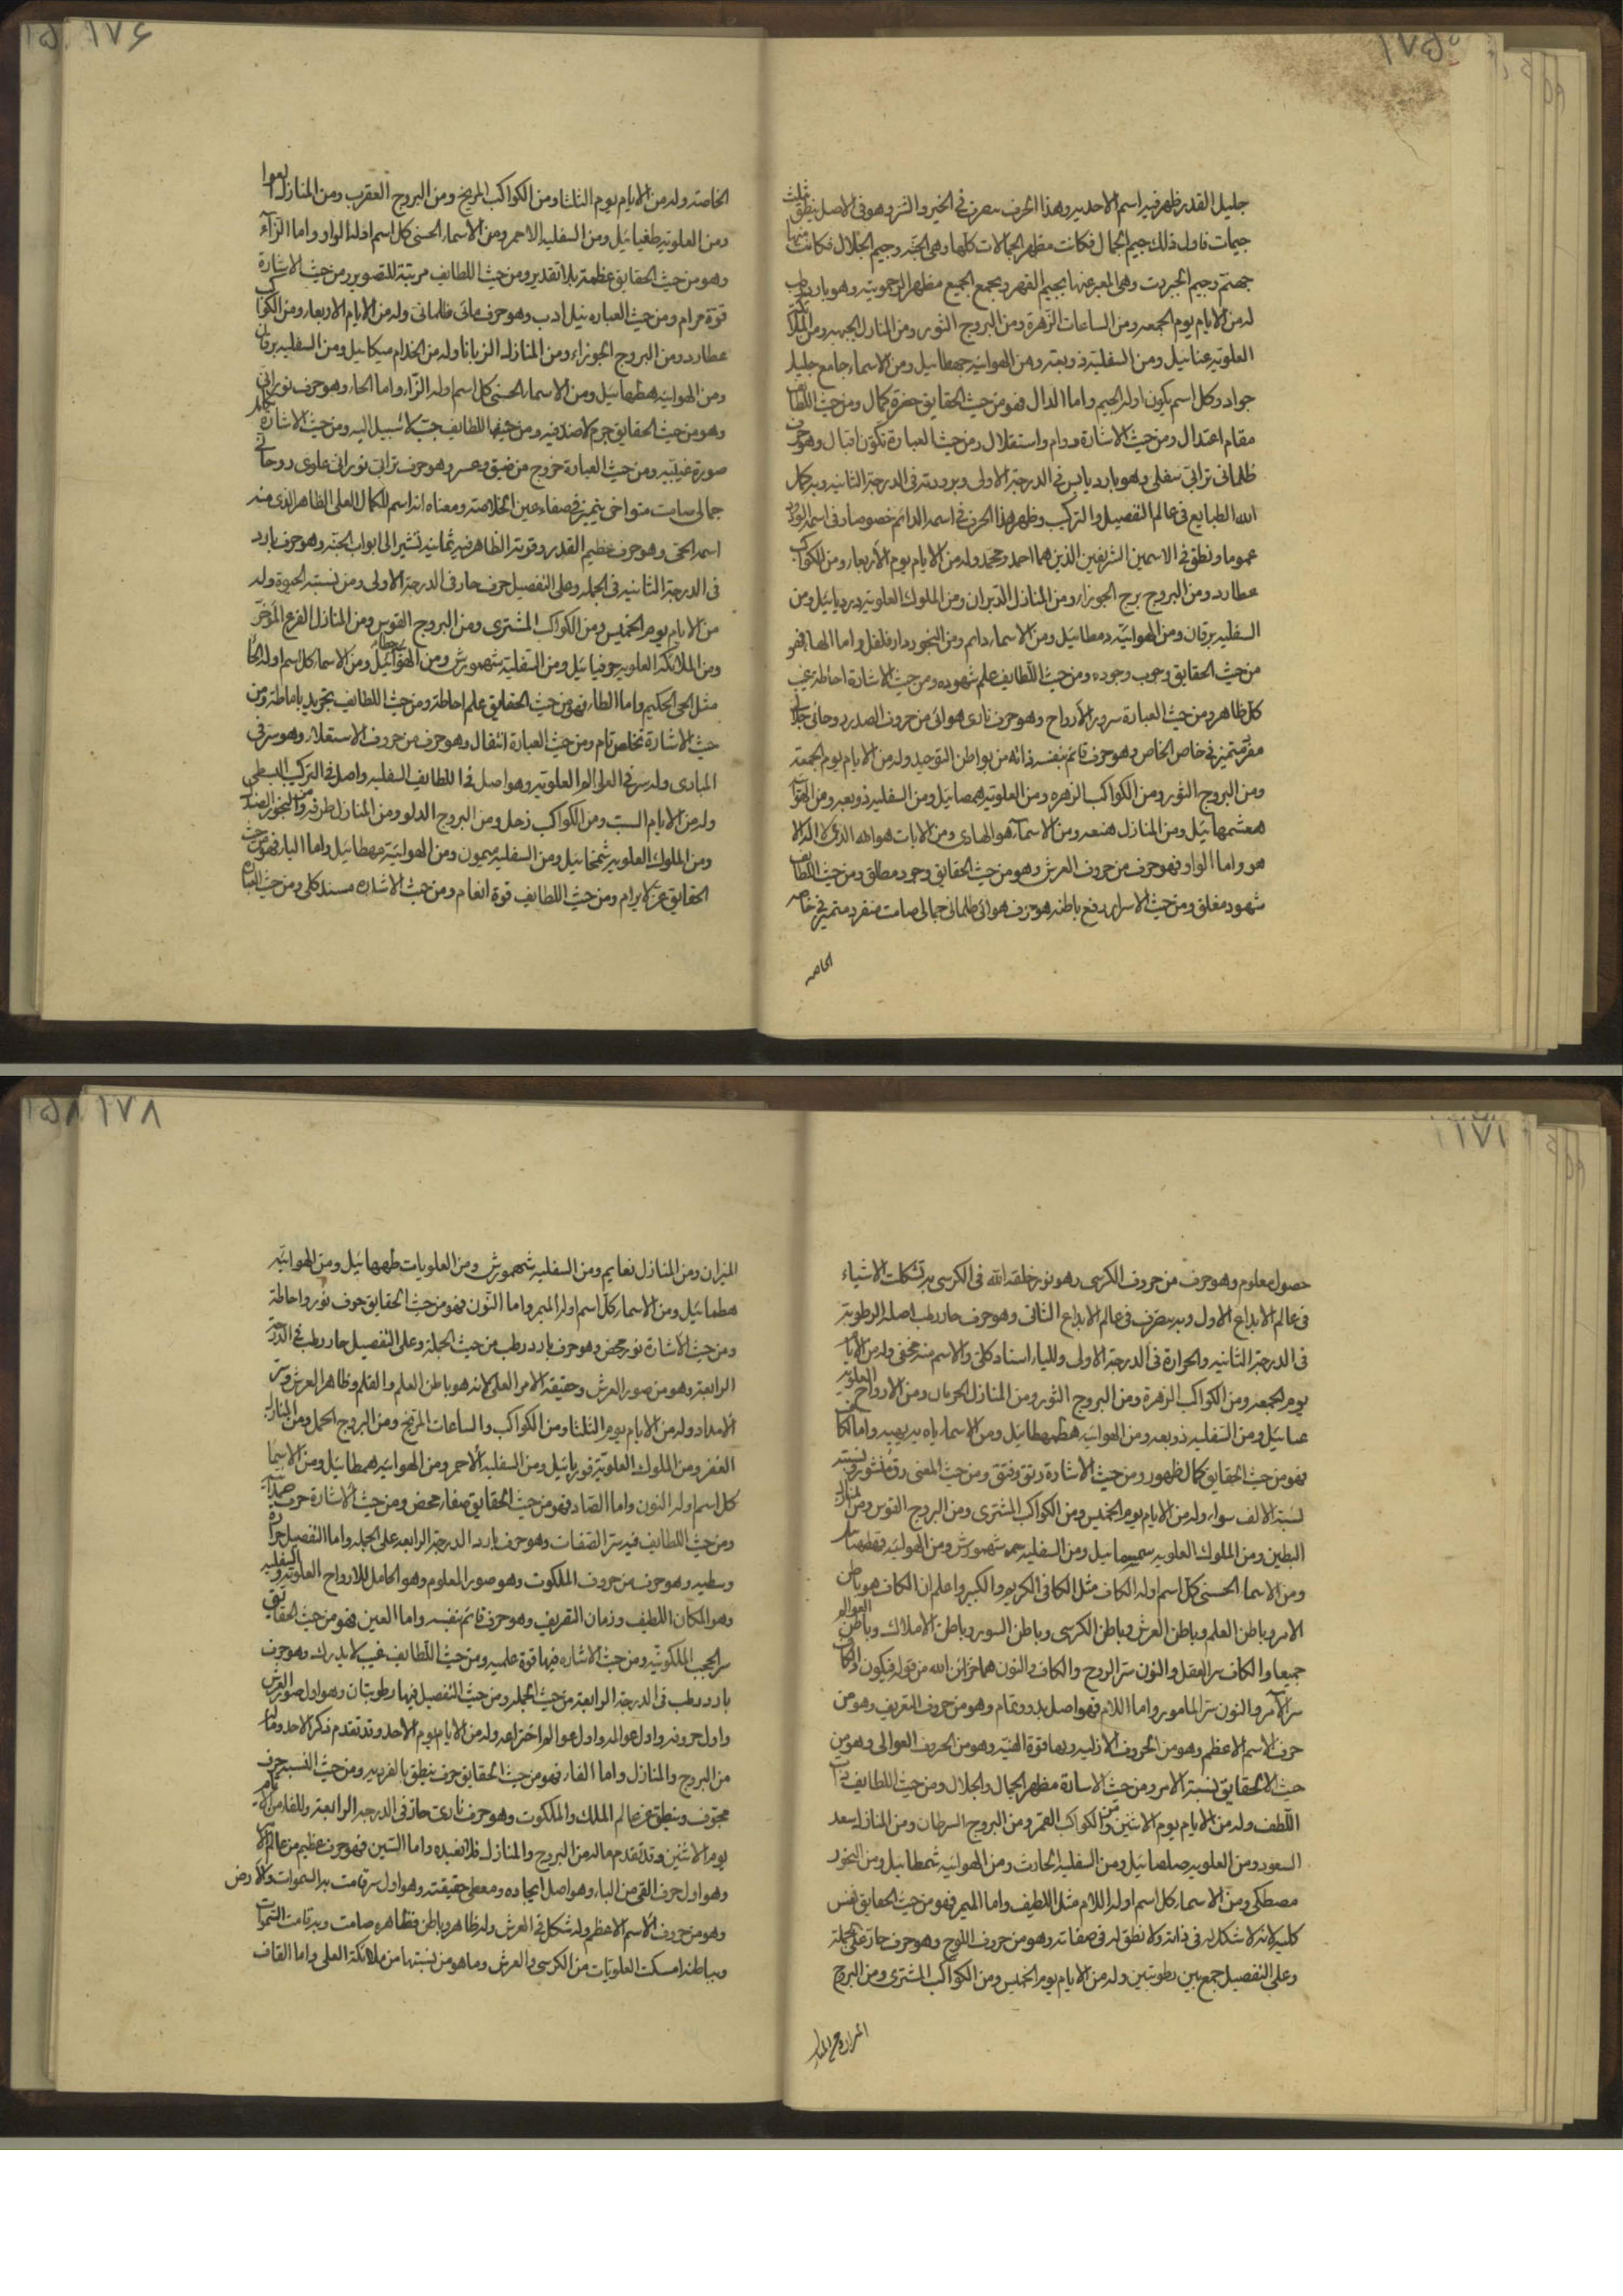 ١٧٥
جليل القدر ظهر فيه اسم الاحديه وهذا الحرف يتصرف فى الخير والشر وهو فى الاصل ينطق ثلث
جيمات فاول ذلك جيم الجمال فكانت مظهر الجمالات كلها وهى الجنه وجيم الجلال فكانت منها
جهنم وجيم الجبروت وهى المعبر عنها بجيم القهر ومجمع الجميع مظهر الرحموتيه وهو بارد رطب
له من الايام يوم الجمعه ومن الساعات الزهرة ومن البروج الثور ومن المنازل الجبهه ومن الملائكة
العلويه عنائيل ومن السفليه ذوبعه ومن الهوائيه جمطائيل ومن الاسماء جامع جليل
جواد وكل اسم يكون اوله الجيم واما الدال فهو من حيث الحقايق حضرة كمال ومن حيث اللطايف
مقام اعتدال ومن حيث الاشارة دوام واستقلال ومن حيث العبارة تكون اقبال وهو حرف
ظلمانى ترابى سفلى وهو بارد يابس فى الدرجة الاولى وبرودته فى الدرجة الثانيه وبه كمل
الله الطبايع فى عالم التفصيل والتركيب وظهر هذا الحرف فى اسمه الدائم خصوصا وفى اسمه الودود
عموما ونطق فى الاسمين الشريفين الذين هما احمد ومحمد وله من الايام يوم الاربعا ومن الكواكب
عطارد ومن البروج برج الجوزاء ومن المنازل الدبران ومن الملوك العلويه دردبائيل ومن
السفليه برقان ومن الهوائيه دمطائيل ومن الاسماء دائم ومن البخور دار فلفل واما الهاء فهو
من حيث الحقايق وجوب وجوده ومن حيث اللطايف علم شهوده ومن حيث الاشارة احاطة غيب
كل ظاهر ومن حيث العبارة سرور الارواح وهو حرف نارى هوائى من حروف الصدر روحانى جلالى
مفرد متميز فى خاص الخاص وهو حرف قائم بنفسه ذاته من بواطن التوحيد وله من الايام يوم الجمعه
ومن البروج الثور ومن الكواكب الزهره ومن العلويه همصائيل ومن السفليه ذوبعه ومن الهوائيه
هعشمهائيل ومن المنازل هنعه ومن الاسماء هو الهادى ومن الايات هو الله الذى لا اله الا
هو واما الواو فهو حرف من حروف العرش وهو من حيث الحقايق وجود مطلق ومن حيث اللطايف
شهود مغلق ومن حيث الاسرار رفع باطنه هو حرف هوائى ظلمانى جمالى صامت منفرد متميز فى خاصه
الخاصه
١٧۶
الخاصة وله من الايام يوم الثلثا ومن الكواكب المريخ ومن البروج العقرب ومن المنازل العوا
ومن العلويه طغيائيل ومن السفليه الاحمر ومن الاسماء الحسنى كل اسم اوله الواو واما الزاء
وهو من حيث الحقايق عظمة بلا تقدير ومن حيث اللطايف مرتبة للتصوير ومن حيث الاشارة
قوة مرام ومن حيث العباره نيل ادب وهو حرف مائى ظلمانى وله من الايام الاربعاء ومن الكواكب
عطارد ومن البروج الجوزاء ومن المنازل الزبانا وله من الخدام ميكائيل ومن السفليه برقان
ومن الهوائيه هطهائيل ومن الاسماء الحسنى كل اسم اوله الزاء واما الحاء وهو حرف نورانى
وهو من حيث الحقايق جرم لا ضد فيه ومن حيث اللطايف حب لا سبيل اليه ومن حيث الاشارة كمال
صورة غيبيه ومن حيث العبارة خروج من ضيق وعسر وهو حرف ترابى نورانى علوى روحانى
جمالى صامت متواخى يتميز فى صفاء عين الخلاصة ومعناه انه اسم للكمال العلى الظاهر الذى منه
اسمه الحق وهو حرف عظيم القدر وقوته الظاهر فيه ثمانية تشير الى ابواب الجنه وهو حرف بارد
فى الدرجة الثانيه فى الجمله وعلى التفصيل حرف حار فى الدرجة الاولى ومن نسبته الحيوة وله
من الايام يوم الخميس ومن الكواكب المشترى ومن البروج القوس ومن المنازل الفرع المؤخر
ومن الملائكة العلويه حوفيائيل ومن السفلية شمهورش ومن الهوائيه حطائيل ومن الاسماء كل اسم اوله الحاء
مثل الحى الحكيم واما الطاء فهو من حيث الحقايق علم احاطة ومن حيث اللطايف تجريد باماطة ومن
حيث الاشارة تخلص تام ومن حيث العبارة انتقال وهو حرف من حروف الاستعلاء وهو سر فى
المبادى وله سر فى العلى العلويه وهو اصل فى اللطايف السفليه واصل فى التركيب البسطى
وله من الايام السبت ومن الكواكب زحل ومن البروج الدلو ومن المنازل طرفه ومن البخور الصندل
ومن الملوك العلويه شمخائيل ومن السفليه ميمون ومن الهوائيه مهطائيل واما الياء فهو من حيث
الحقايق عز لا يرام ومن حيث اللطايف قوة انعام ومن حيث الاشاره مسند كلى ومن حيث العبارة
١٧١
حصول معلوم وهو حرف من حروف الكرسى وهو نور خلقه الله فى الكرسى به تشكلت الاشياء
فى عالم الابداع الاول وبه يتصرف فى عالم الابداع الثانى وهو حرف حار رطب اصله الرطوبه
فى الدرجة الثانيه والحرارة فى الدرجة الاولى ولليا اسناد كلى والاسم منه مخفى وله من الايام
يوم الجمعه ومن الكواكب الزهرة ومن البروج الثور ومن المنازل ومن الارواح العلويه
عنيائيل ومن السفليه ذوبعه ومن الهوائيه هطهطائيل ومن الاسماء ياه واما الكاف
فهو من حيث الحقايق كمال ظهور ومن حيث الاشارة رتق وفتق ومن حيث المعنى رق منشور ونسبته
نسبة الالف سواء وله من الايام يوم الخميس ومن الكواكب المشترى ومن البروج القوس ومن المنازل
البطين ومن الملوك العلويه ومن السفليه شمهورش ومن الهوائيه
ومن الاسماء الحسنى كل اسم اوله الكاف مثل الكافى الكريم والكبير واعلم ان الكاف هو باطن
الامر وباطن العلم وباطن العرش وباطن الكرسى وباطن السور وباطن الاملاك وباطن العوالم
جميعا والكاف سر العقل والنون سر الروح والكاف والنون هما خزائن الله من قوله فيكون والكاف
سر الامر والنون سر المامور واما اللام فهو اصل بدو وتمام وهو من حروف التعريف وهو من
حرف الاسم الاعظم وهو من الحروف الازليه وبها قوة الهيه وهو من الحروف العوالى وهو من
حيث الحقايق نسبة الامر ومن حيث الاشارة مظهر الجمال والجلال ومن حيث اللطايف ذات
اللطف وله من الايام يوم الاثنين ومن الكواكب القمر ومن البروج السرطان ومن المنازل سعد
السعود ومن العلويه صلصائيل ومن السفليه الحارث ومن الهوائيه شمطائيل ومن البخور
مصطكى ومن الاسماء كل اسم اوله اللام مثل اللطيف واما الميم فهو من حيث الحقايق نفس
كليه لانه لا شكل له فى ذاته ولا نطق له فى صفاته وهو من حروف اللوح وهو حرف حار على الجملة
وعلى التفصيل جمع بين رطوبتين وله من الايام يوم الخميس ومن الكواكب المشترى ومن البروج
١٧٨
الميزان ومن المنازل نعايم ومن السفليه شمهورش ومن العلويات طههائيل ومن الهوائيه
هطمائيل ومن الاسماء كل اسم اوله الميم واما النون فهو من حيث الحقايق حرف نور واحاطة
ومن حيث الاشارة نور محض وهو حرف بارد رطب من حيث الجملة وعلى التفصيل حار رطب فى الدرجة
الرابعة وهو من صور العرش وحقيقة الامر العلى لانه هو باطن العلم والقلم وظاهر العرش وسر
الامداد وله من الايام يوم الثلثا ومن الكواكب والساعات المريخ ومن البروج الحمل ومن المنازل
الغفر ومن الملوك العلويه فوريائيل ومن السفليه الاحمر ومن الهوائيه همطائيل ومن الاسماء
كل اسم اوله النون واما الصاد فهو من حيث الحقايق صفاء محض ومن حيث الاشارة حرف صمدانى
ومن حيث اللطايف فيه سر الصفات وهو حرف بارد الدرجة الرابعه على الجمله واما التفصيل حرارة
وسطيه وهو حرف من حروف الملكوت وهو صور المعلوم وهو الحامل للارواح العلويه والسفليه
وهو المكان اللطيف وزمان التعريف وهو حرف قائم بنفسه واما العين فهو من حيث الحقايق
سر الحجب الملكوتيه ومن حيث الاشاره فيها قوة علميه ومن حيث اللطايف غيب لا يدرك وهو حرف
بارد رطب فى الدرجة الرابعة من حيث الجملة ومن حيث التفصيل فيها رطوبتان وهو اول صور العرش
واول حروفه واول عوالمه واول عوالم اختراعه وله من الايام يوم الاحد وقد تقدم ذكر الاحد وماله
من البروج والمنازل واما الفاء فهو من حيث الحقايق حرف ينطق بالفردیه ومن حيث النسبه حرف
مجوف وينطق عن عالم الملك والملكوت وهو حرف نارى حار فى الدرجة الرابعة وللفاء من الايام
يوم الاثنين وقد تقدم ماله من البروج والمنازل فلا نعيده واما السين فهو حرف عظيم من عالم الامر
وهو اول حرف القى من الباء وهو اصل ايجاده ومعطى حقيقته وهو اول سر قامت به السموات والارض
وهو من حروف الاسم الاعظم وله شكل فى العرش وله ظاهر وباطن فظاهره صامت وبه قامت السموات
وبباطنه امسكت العلويات من الكرسى والعرش وما هو من نسبتها من ملائكة العلى واما القاف